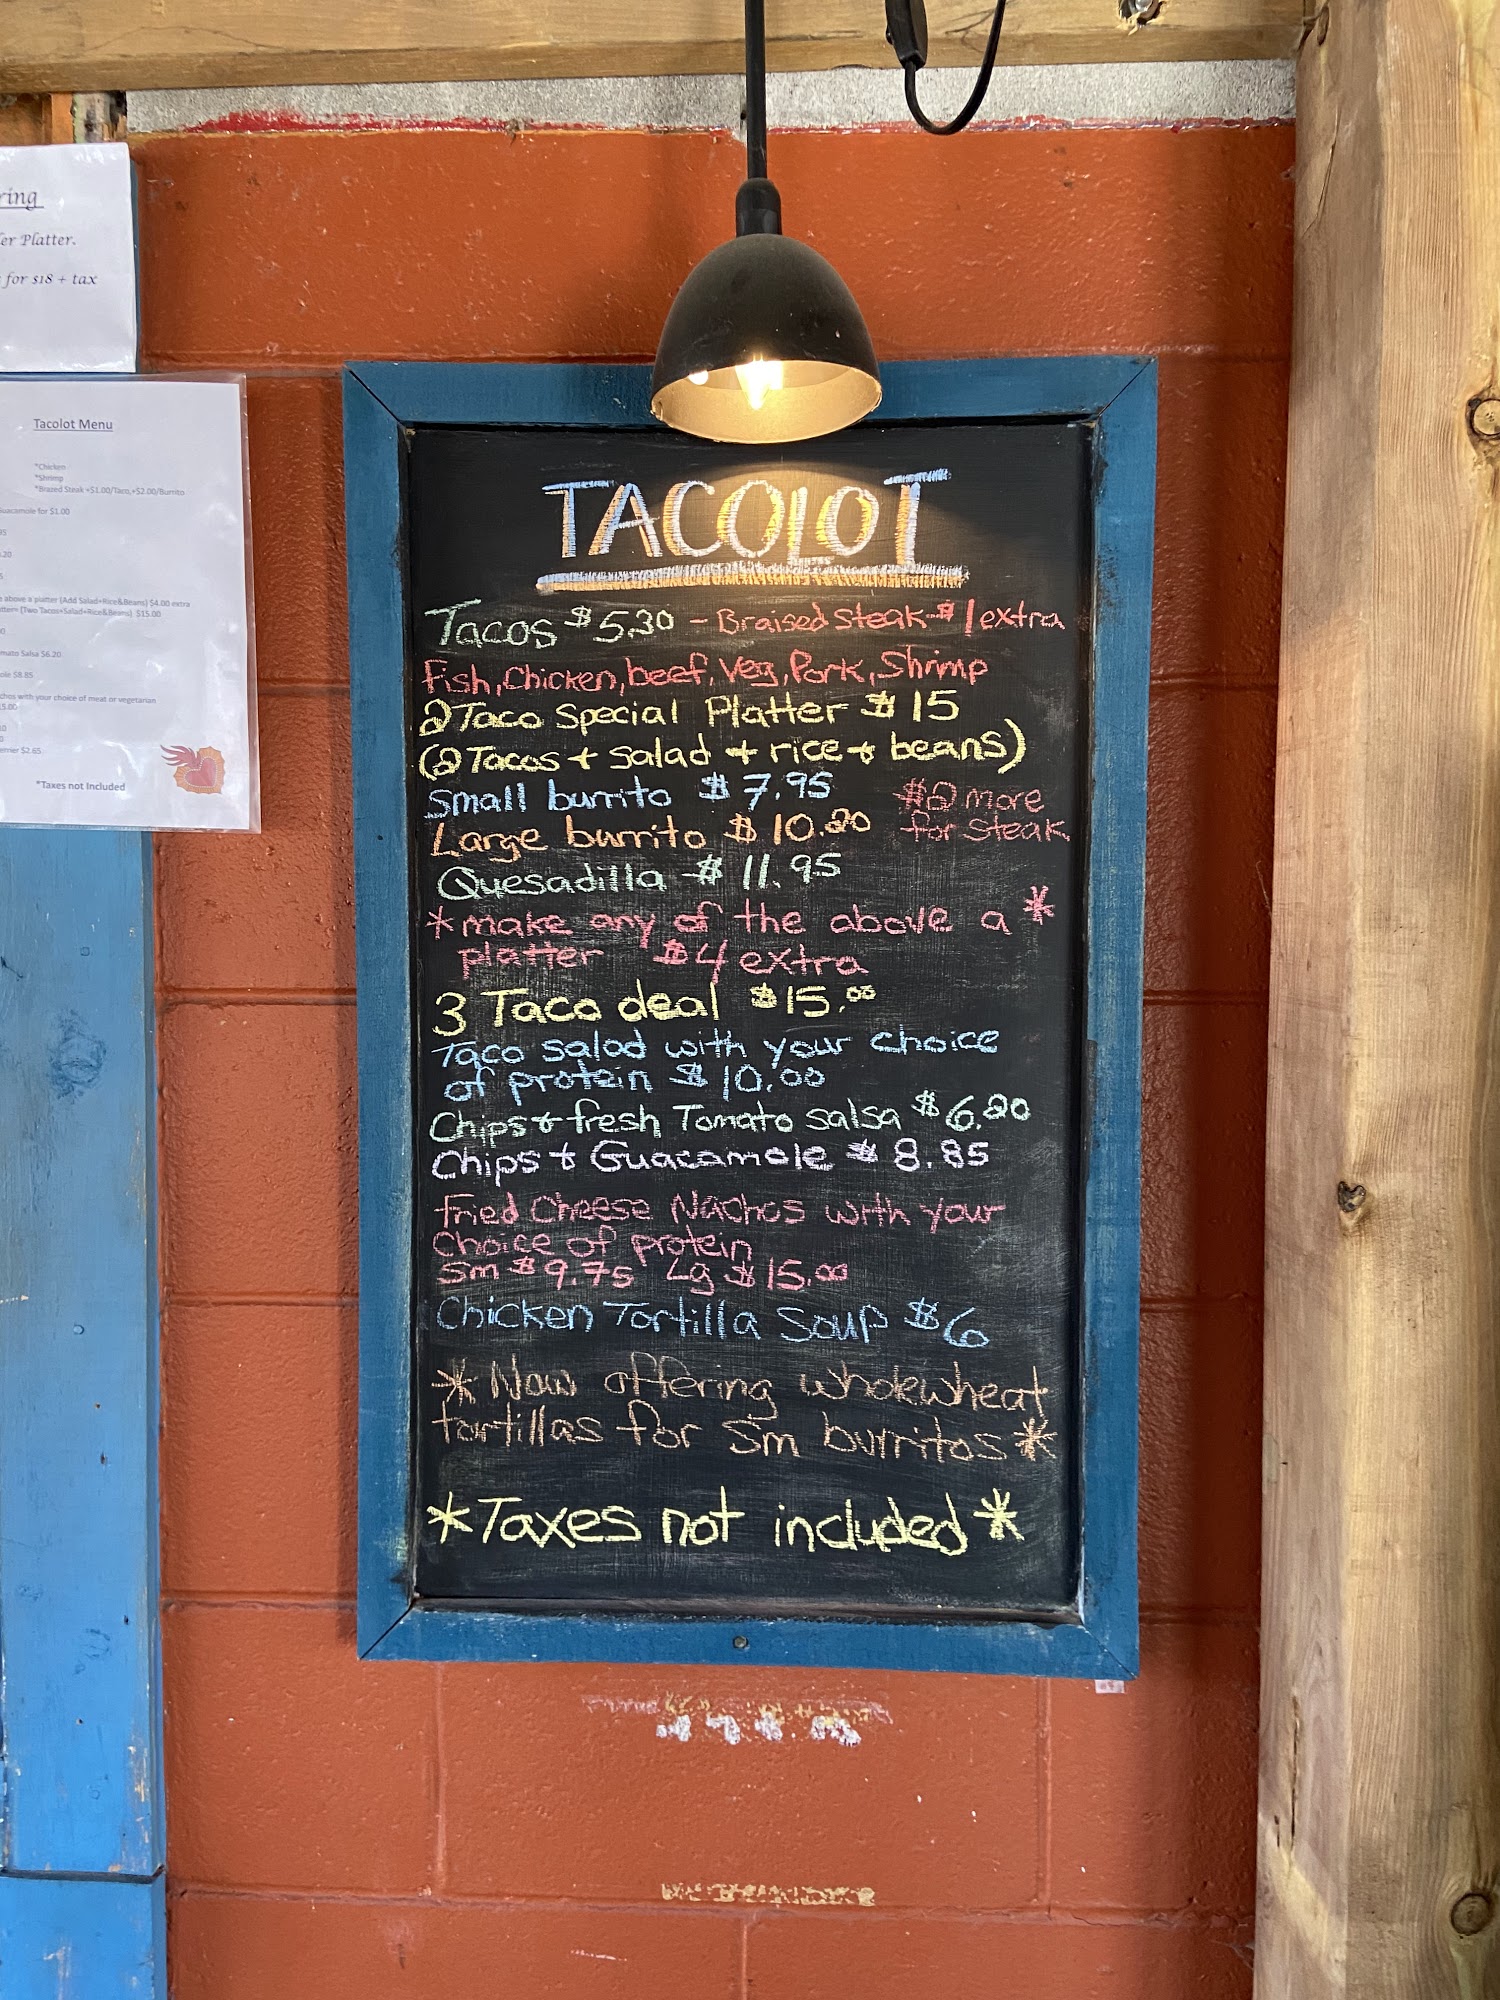 ring
er Platter.
for $18 + tax
Tacolot Menu
*Chicken
*Shrimp
*Brazed Steak +$1.00/Taco,+$2.00/Burrito
Guacamole for $1.00
95
.20
5
above a platter (Add Salad+Rice&Beans) $4.00 extra
(Two Tacos+Salad+Rice&Beans) $15.00
0
mato Salsa $6.20
ole $8.85
chos with your choice of meat or vegetarian
5.00
10
0
errier $2.65
*Taxes not Included
TACOLOT
Tacos $5.30 - Braised Steak $1 extra
Fish, Chicken, beef, Veg, Pork, Shrimp
2 Taco Special Platter $15
(2 Tacos + salad + rice + beans)
Small burrito $7.95
Large burrito $10.20
$2 more
for steak
Quesadilla $11.95
*make any of the above a *
platter $4 extra
3 Taco deal $15.00
Taco salad with your choice
of protein $10.00
Chips + fresh Tomato salsa $6.20
Chips + Guacamole $8.85
Fried Cheese Nachos with your
choice of protein
Sm $9.75 Lg $15.00
Chicken Tortilla Soup $6
*Now offering wholewheat
tortillas for sm burritos*
*Taxes not included*